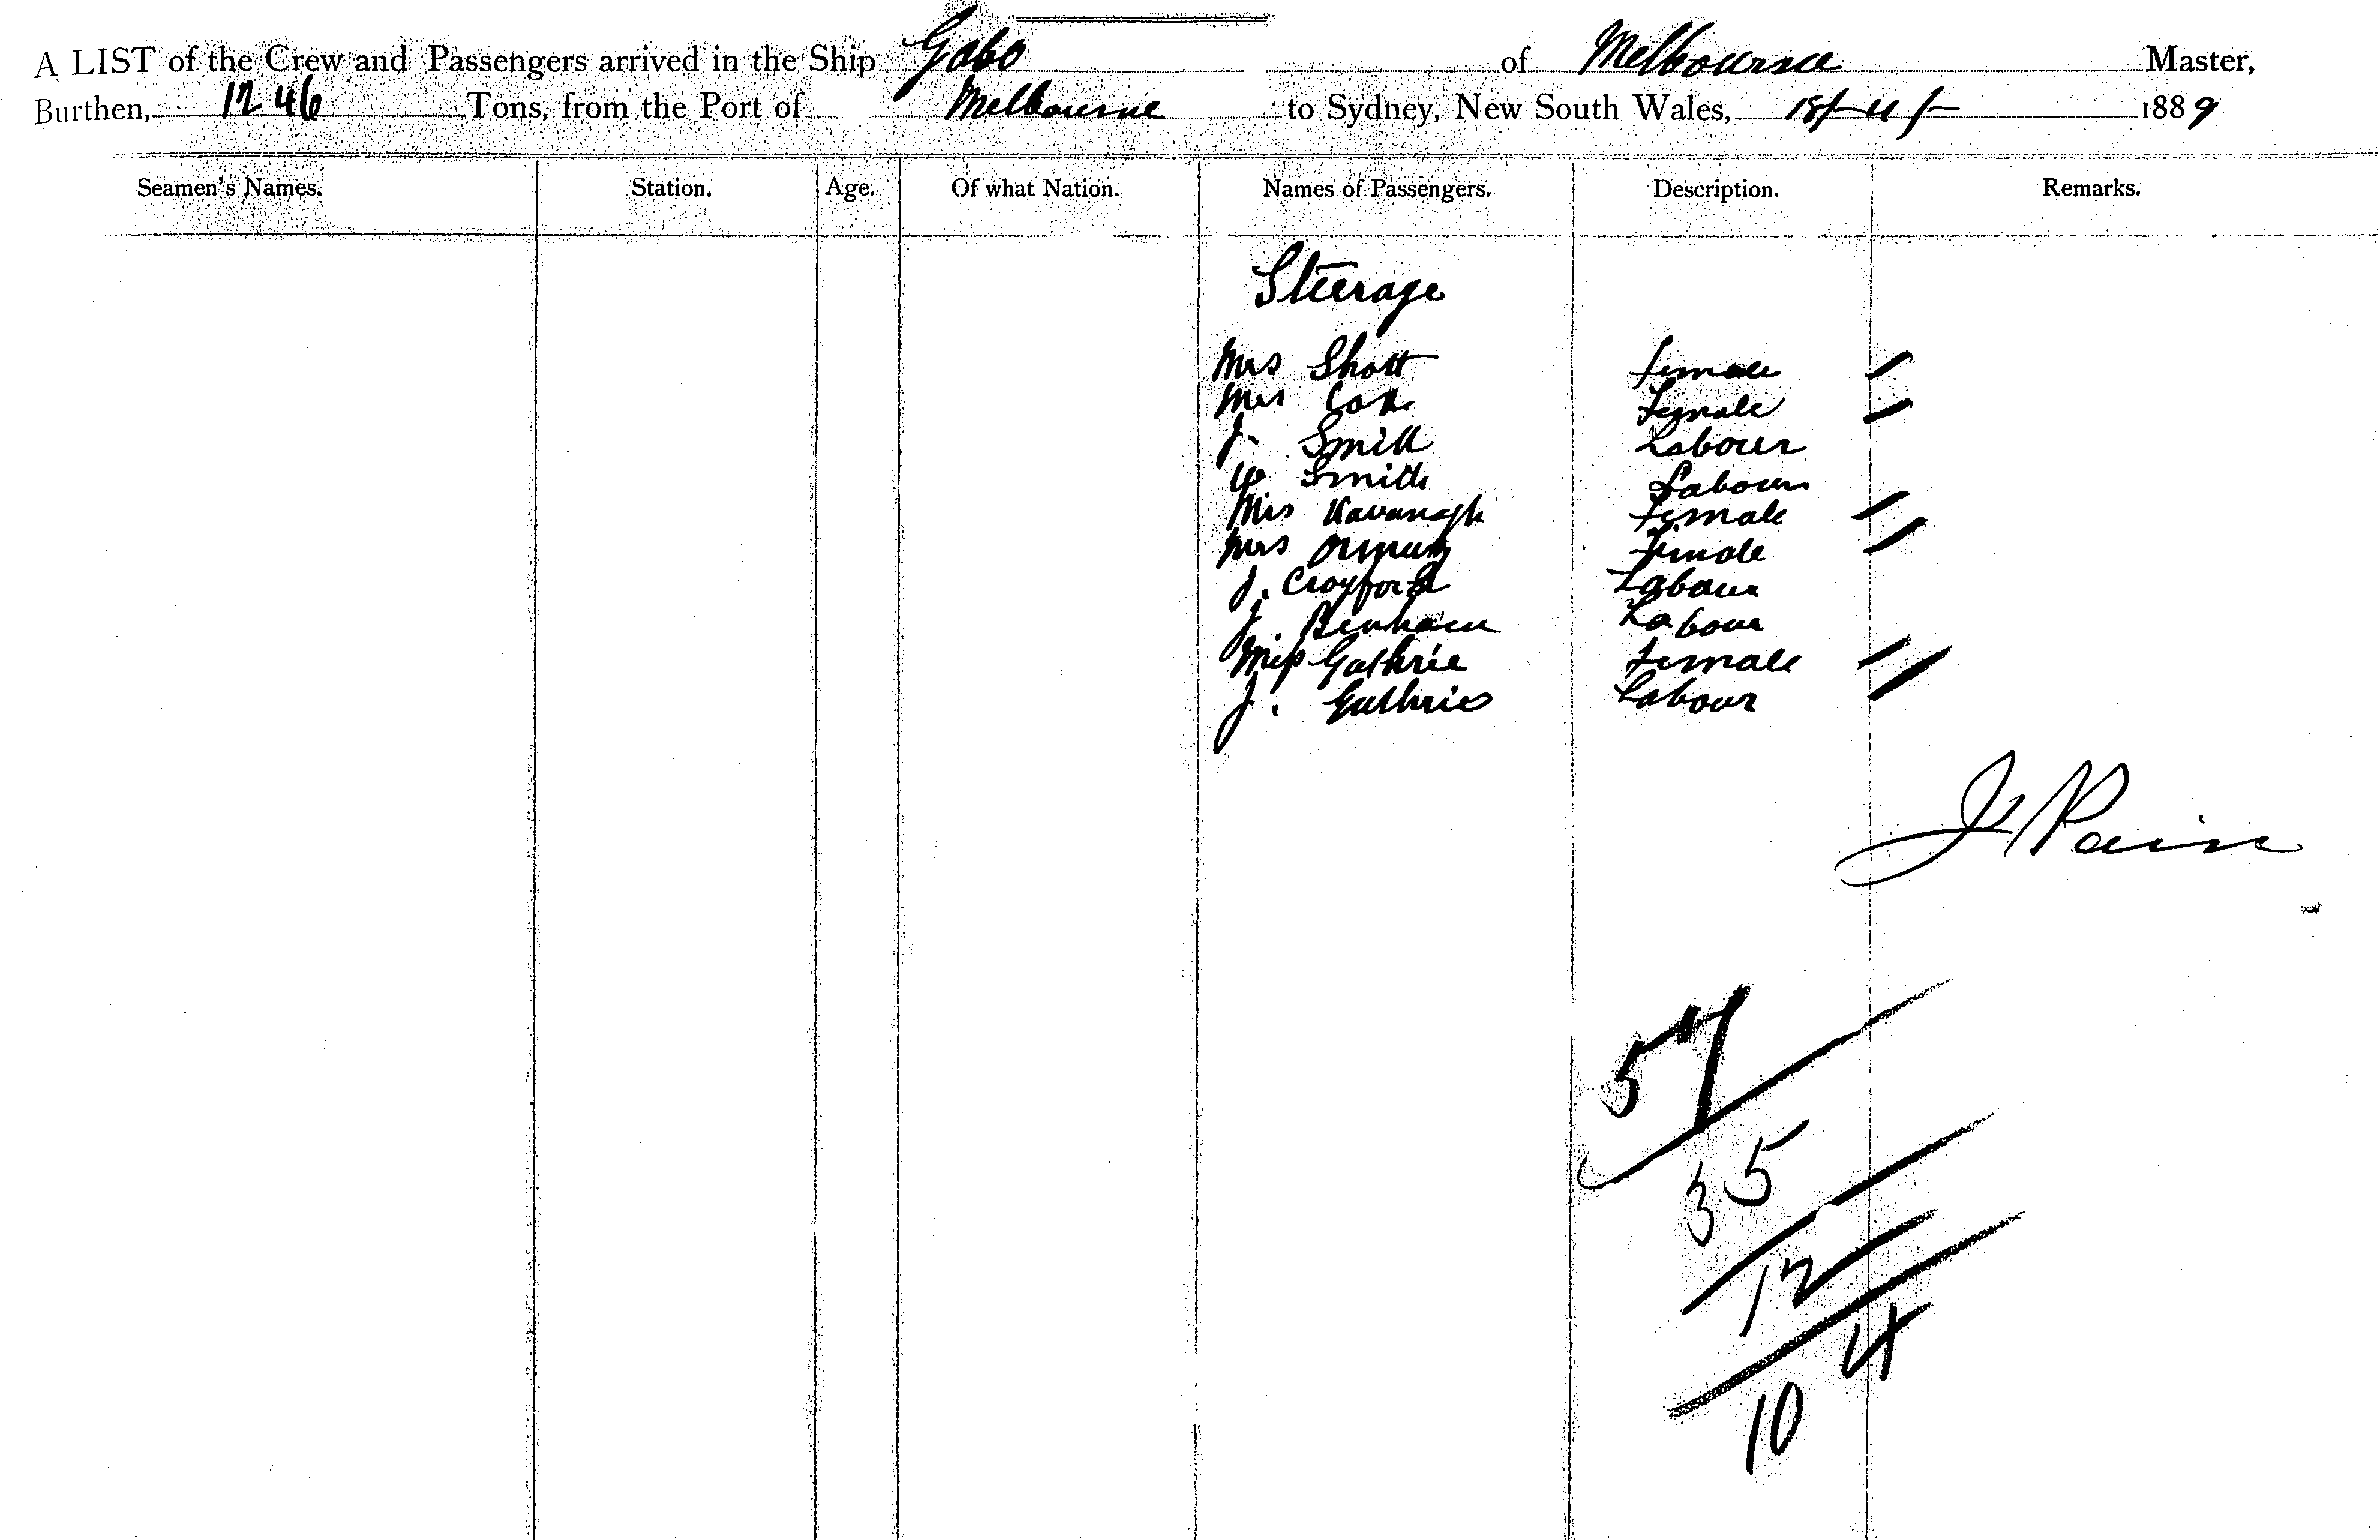 A LIST of the Crew and Passengers arrived in the Ship Gabo of Melbourne Master,
Burthen, 1246 Tons, from the Port of Melbourne to Sydney, New South Wales, 18/ 1889
Seamen's Names. Station. Age. Of what Nation. Names of Passengers. Description. Remarks.
Steerage
Mrs Shott Female
Mrs Female
J. Smith Labour
Smith Labour
Mrs Kavanagh Female
Mrs Female
J. Croyford Labour
J. Benham Labour
Miss Guthrie Female
J. Guthrie Labour
Pain
57
35
12
4
10